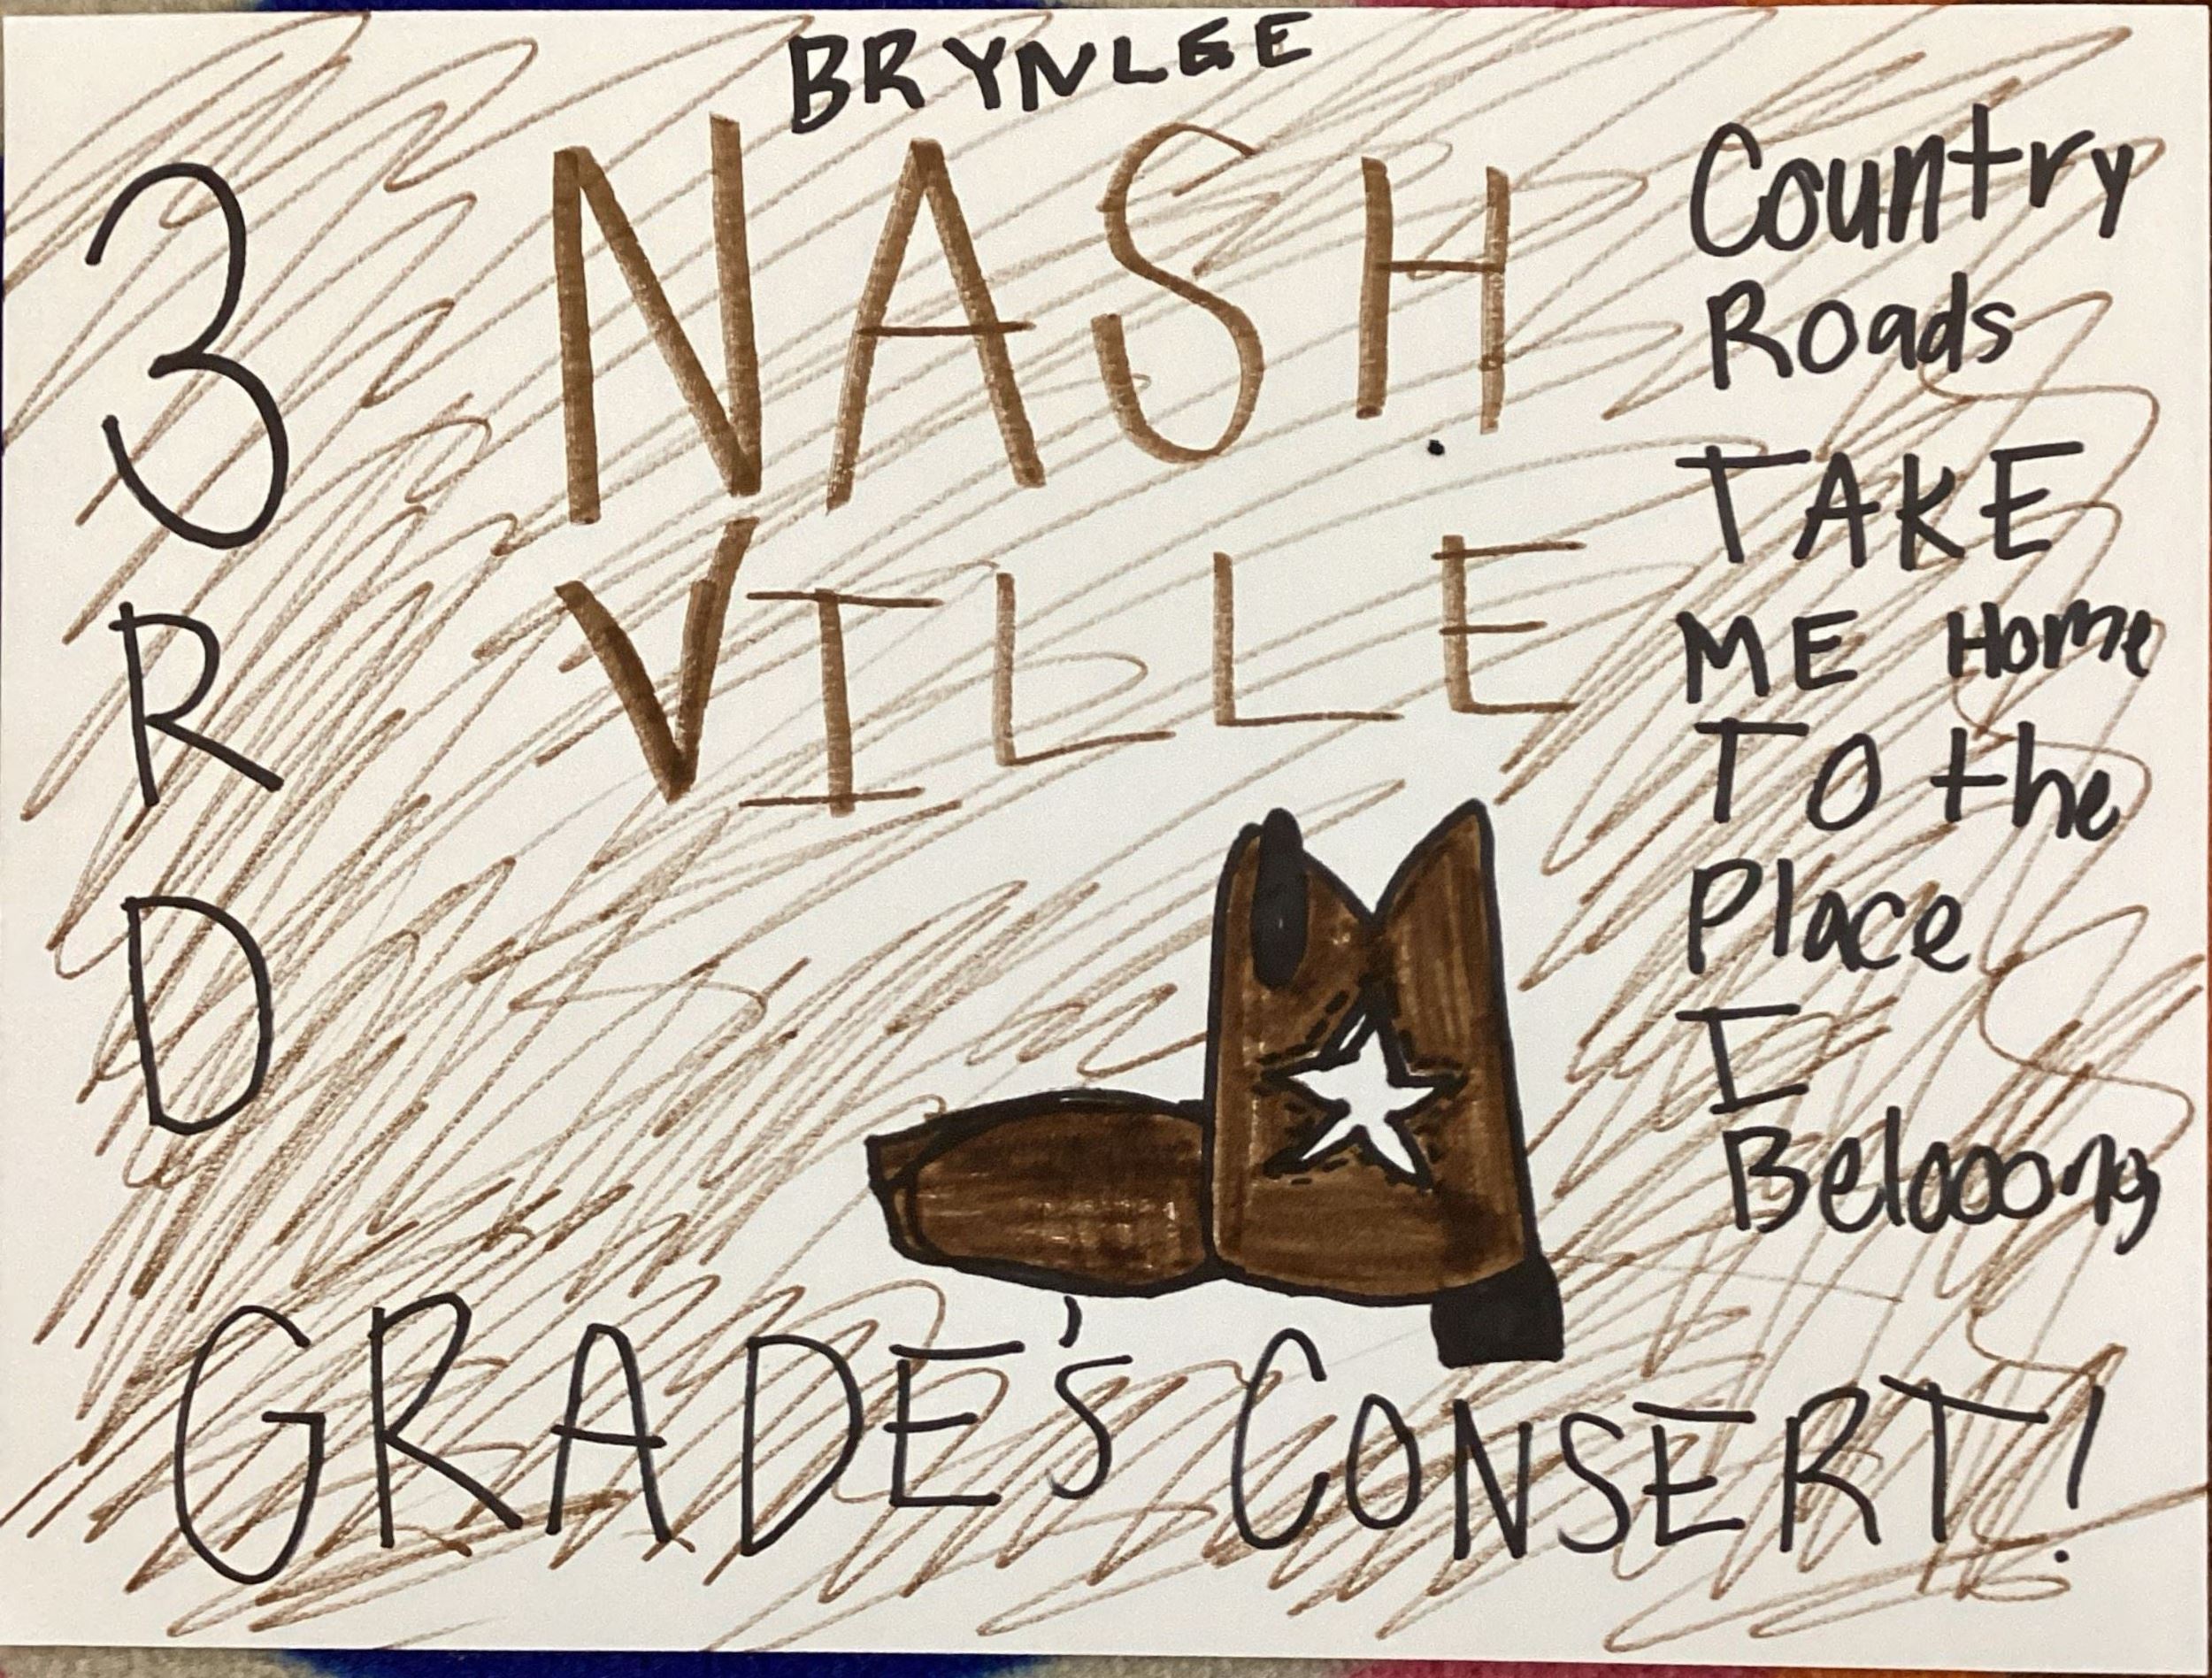 BRYNLEE
NASH
VILLE
3
R
D
GRADE'S CONSERT!
Country
Roads
TAKE
ME Home
TO the
Place
I
Belooong